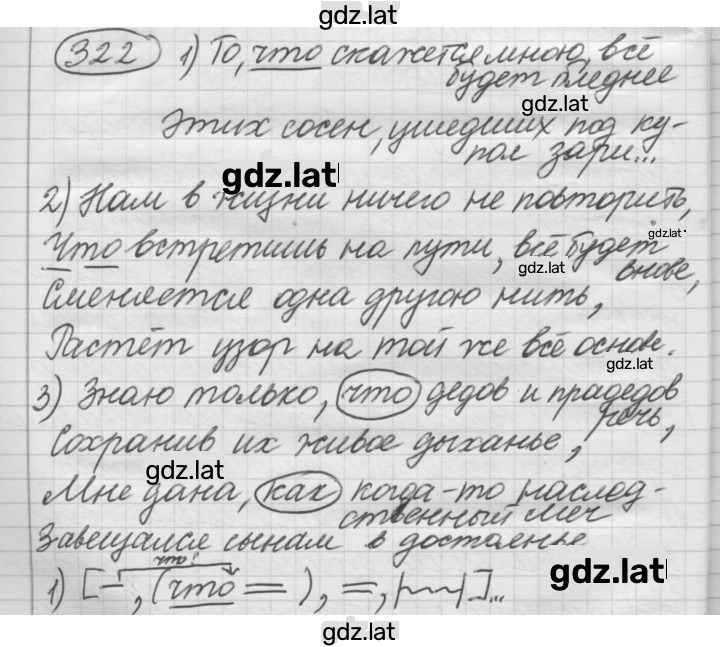 gdz.latl
322 1) То, что скажется мною, всё
будет бледнее
gdz.latl
Этих сосен, ушедших под ку-
пол зари...
gdz.latl
2) Нам в жизни ничего не повторить,
gdz.latl
Что встретишь на пути, всё будет
внове,
gdz.latl
Сменяется одна другою нить,
Растёт узор на той же всё основе.
gdz.latl
3) Знаю только, что дедов и прадедов
речь,
Сохранив их живое дыханье,
gdz.latl
Мне дана, как когда-то наслед-
ственный меч
Завещался сынам в достоянье
что?
gdz.latl
1) [–, (что =), =, |~~|]...
gdz.latl